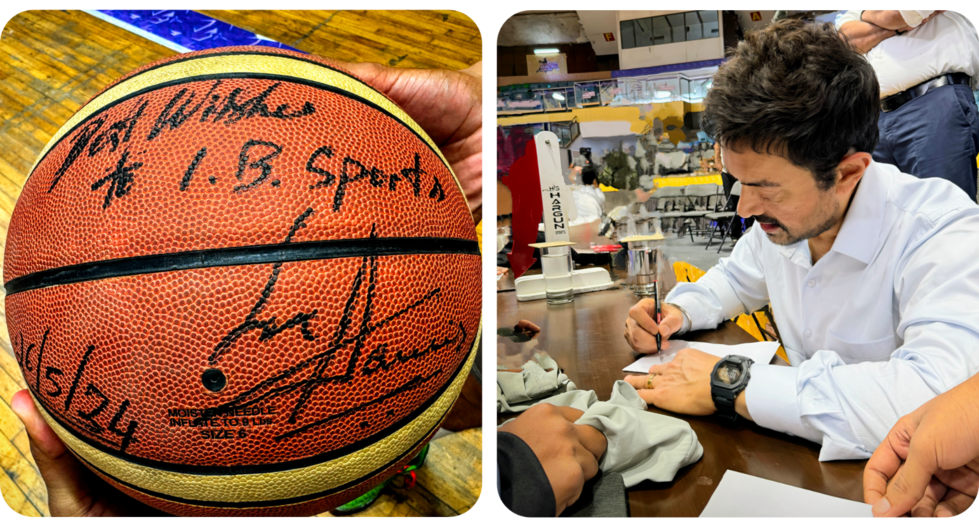 Best Wishes
to I.B. Sports
26/5/24
MOISTEN NEEDLE
INFLATE TO 8 Lbs
SIZE 6
HARGUN